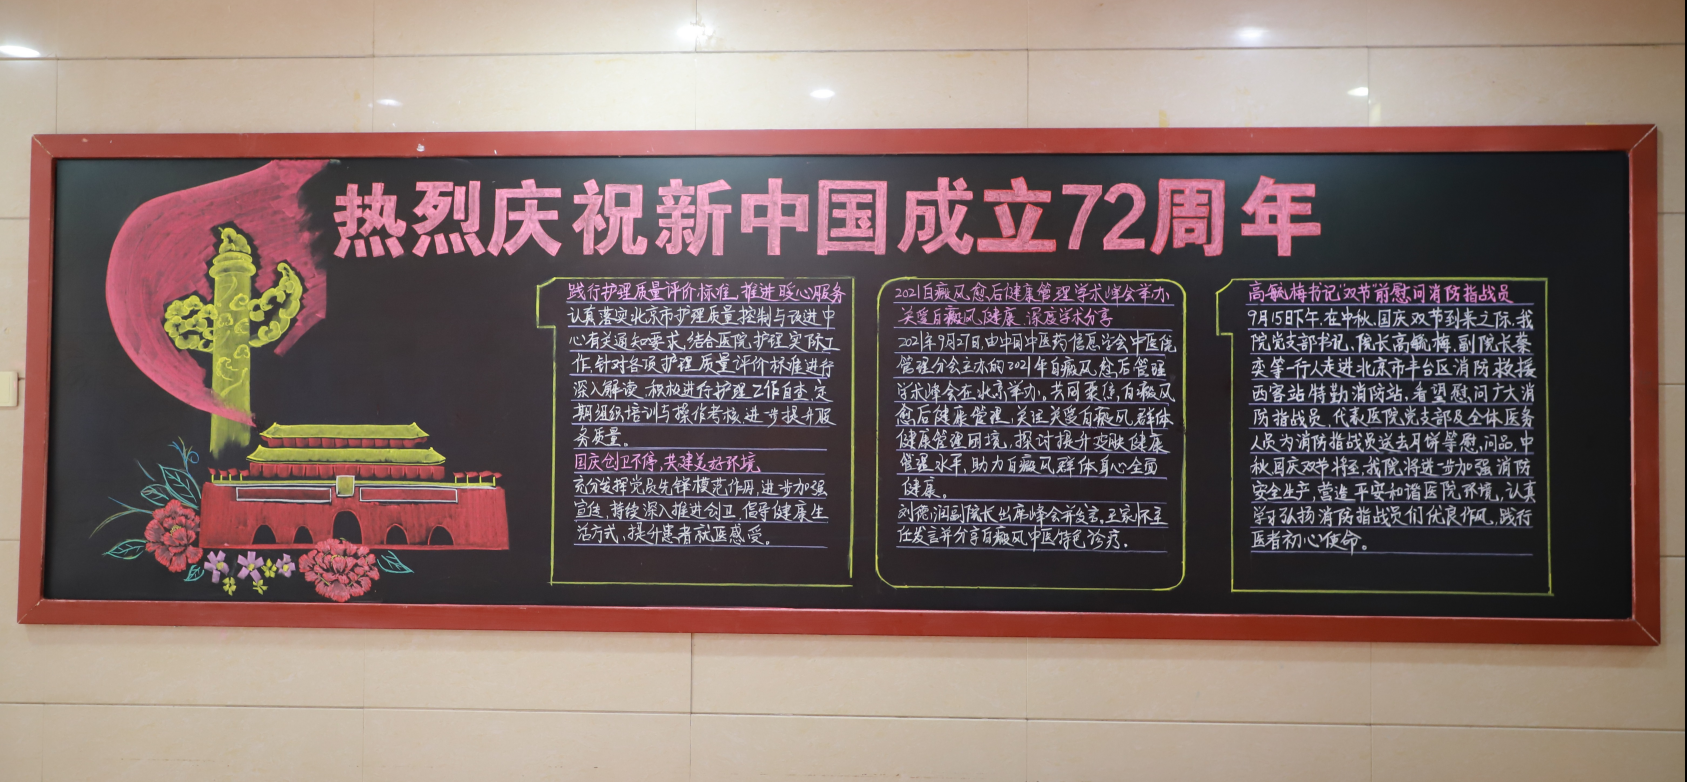 热烈庆祝新中国成立72周年
践行护理质量评价标准,推进暖心服务
认真落实北京市护理质量控制与改进中
心有关通知要求,结合医院护理实际工
作,针对各项护理质量评价标准进行
深入解读,积极进行护理工作自查,定
期组织培训与操作考核,进一步提升服
务质量。
国庆创卫不停,共建美好环境
充分发挥党员先锋模范作用,进一步加强
宣传,持续深入推进创卫,倡导健康生
活方式,提升患者就医感受。
2021白癜风愈后健康管理学术峰会举办
关爱白癜风健康 深度学术分享
2021年9月27日,由中国中医药信息学会中医院
管理分会主办的2021年白癜风愈后管理
学术峰会在北京举办。共同聚焦白癜风
愈后健康管理,关注关爱白癜风群体
健康管理困境,探讨提升皮肤健康
管理水平,助力白癜风群体身心全面
健康。
刘德润副院长出席峰会并发言,王家怀主
任发言并分享白癜风中医特色诊疗.
高毓梅书记“双节”前慰问消防指战员
9月15日下午,在中秋、国庆双节到来之际,我
院党支部书记、院长高毓梅,副院长蔡
奕等一行人走进北京市丰台区消防救援
西客站特勤消防站,看望慰问广大消
防指战员,代表医院党支部及全体医务
人员为消防指战员送去月饼等慰问品,中
秋国庆双节将至,我院将进一步加强消防
安全生产,营造平安和谐医院环境,认真
学习弘扬消防指战员们优良作风,践行
医者初心使命。